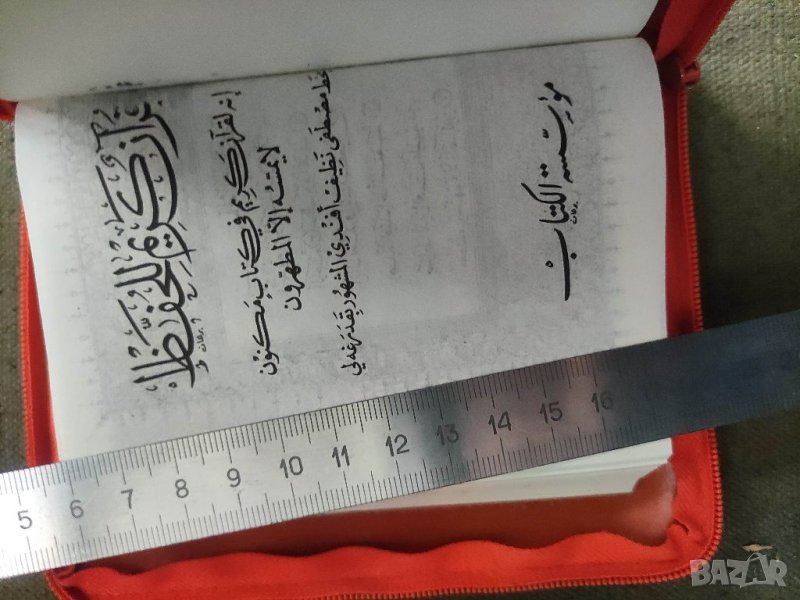 قرآن كريم للحفظ
إنه لقرآن كريم في كتاب مكنون
لا يمسه إلا المطهرون
خط مصطفى نظيف أفندي الشهور بقدرغه لي
مؤسسة الكتاب
5 6 7 8 9 10 11 12 13 14 15 16
BAZAR